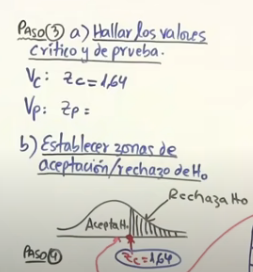 Paso(3) a) Hallar los valores
crítico y de prueba.
Vc: Zc=1,64
Vp: Zp=
b) Establecer zonas de
aceptación/rechazo de Ho
Rechaza Ho
Acepta Ho
Paso(4)
Zc=1,64